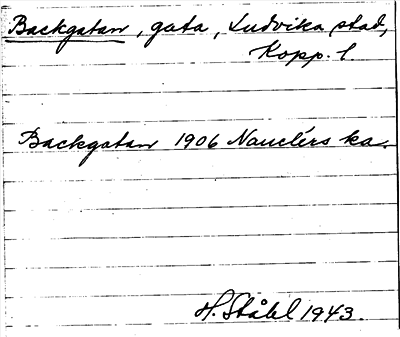 Backgatan, gata, Ludvika stad,
Kopp. l.
Backgatan 1906 Nauclérs ka.
H. Ståhl 1943.